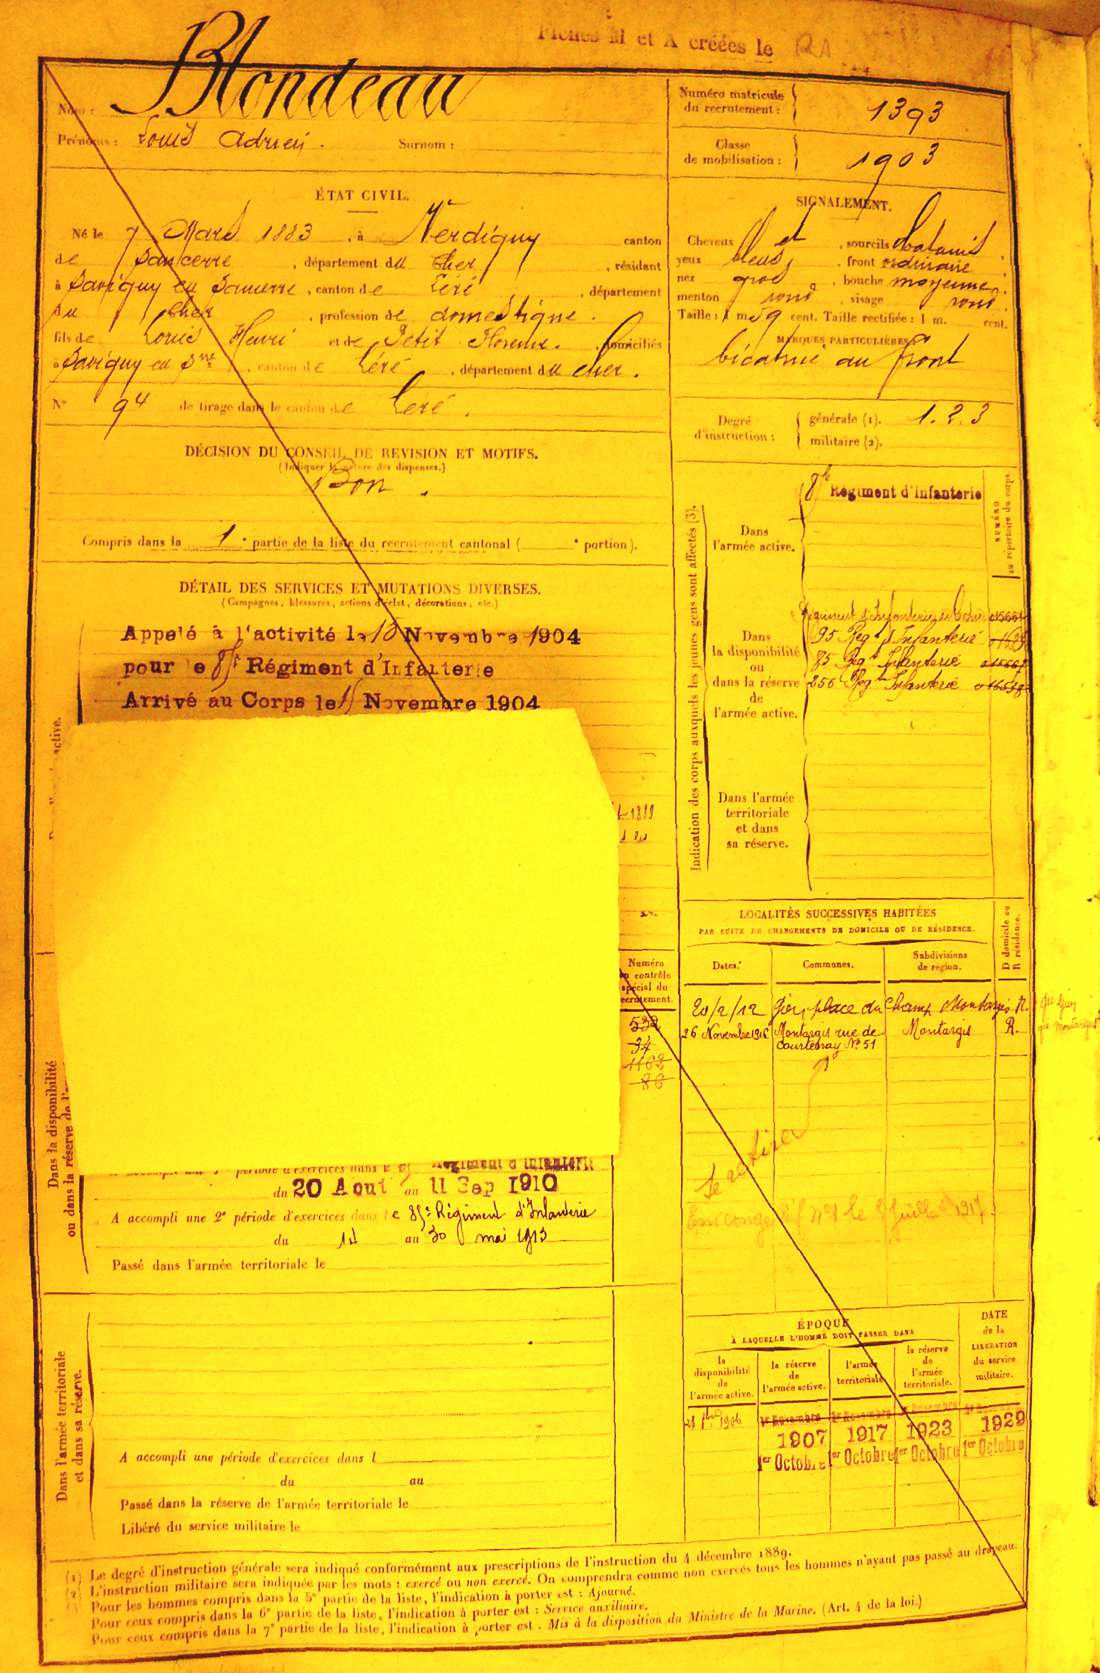 Fiches M et A créées le
Blondeau
Nom :
Prénoms : Louis Adrien . Surnom :
Numéro matricule
du recrutement : 1393
Classe
de mobilisation : 1903
ÉTAT CIVIL.
Né le 7 Mars 1883 , à Verdigny canton
de Sancerre , département du Cher , résidant
à Savigny en Sancerre , canton de Léré , département
du Cher , profession de domestique .
fils de Louis Henri et de Petit Florence , domiciliés
à Savigny en Sre , canton de Léré , département du Cher .
N° 94 de tirage dans le canton de Léré .
SIGNALEMENT.
Cheveux et , sourcils chatains
yeux bleus , front ordinaire ;
nez gros , bouche moyenne ;
menton rond , visage rond .
Taille : 1 m 59 cent. Taille rectifiée : 1 m. cent.
MARQUES PARTICULIÈRES
cicatrice au front
Degré
d'instruction :
générale (1). 1.2.3
militaire (2).
DÉCISION DU CONSEIL DE REVISION ET MOTIFS.
(Indiquer la nature des dispenses.)
Bon .
Compris dans la 1e partie de la liste du recrutement cantonal ( e portion).
DÉTAIL DES SERVICES ET MUTATIONS DIVERSES.
(Campagnes, blessures, actions d'éclat, décorations, etc.)
Appelé à l'activité le Novembre 1904
pour le 85e Régiment d'Infanterie
Arrivé au Corps le 15 Novembre 1904
Indication des corps auxquels les jeunes gens sont affectés (3).
NUMÉRO
au répertoire du corps.
Dans
l'armée active.
85e Régiment d'Infanterie
Dans
la disponibilité
ou
dans la réserve
de
l'armée active.
Régiment d'Infanterie de
95 Regt d'Infanterie
85 Regt Infanterie
256 Regt Infanterie
Dans l'armée
territoriale
et dans
sa réserve.
LOCALITÉS SUCCESSIVES HABITÉES
PAR SUITE DE CHANGEMENTS DE DOMICILE OU DE RÉSIDENCE.
Dates. Communes. Subdivisions
de région.
D domicile ou
R résidence.
20/2/12 Gien, place du Champ Montargis R.
26 Novembre 1916 Montargis rue de Courtenay N° 51 Montargis R.
Numéro
au contrôle
spécial du
recrutement.
532
34
1162
86
Dans la disponibilité
ou dans la réserve de l'a
période d'exercices dans le Régiment d'Infanterie
du 20 Aout au 11 Sep 1910
A accompli une 2e période d'exercices dans le 85e Régiment d'Infanterie
du 14 au 30 mai 1913
Passé dans l'armée territoriale le
Se retire
le 5 juillet 1917
Dans l'armée territoriale
et dans sa réserve.
A accompli une période d'exercices dans l
du au
Passé dans la réserve de l'armée territoriale le
Libéré du service militaire le
ÉPOQUE
À LAQUELLE L'HOMME DOIT PASSER DANS
DATE
de la
LIBÉRATION
du service
militaire.
la
disponibilité
de
l'armée active.
la réserve
de
l'armée active.
l'armée
territoriale.
la réserve
de
l'armée
territoriale.
1er Novembre 1er Novembre 1er Novembre 1er Novembre
1906 1907 1917 1923 1929
1er Octobre 1er Octobre 1er Octobre 1er Octobre
(1) Le degré d'instruction générale sera indiqué conformément aux prescriptions de l'instruction du 4 décembre 1889.
(2) L'instruction militaire sera indiquée par les mots : exercé ou non exercé. On comprendra comme non exercés tous les hommes n'ayant pas passé au drapeau.
Pour les hommes compris dans la 5e partie de la liste, l'indication à porter est : Ajourné.
Pour ceux compris dans la 6e partie de la liste, l'indication à porter est : Service auxiliaire.
Pour ceux compris dans la 7e partie de la liste, l'indication à porter est . Mis à la disposition du Ministre de la Marine. (Art. 4 de la loi.)